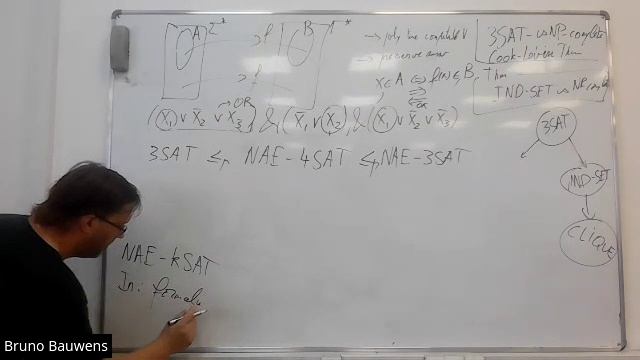 A 2* f B 1*
→ poly time computable ✓
→ preserve answer
x∈A ⇔ f(x)∈B
⇒
⇐
3SAT is NP-complete
Cook-Levin Thm
Thm
IND-SET is NP
→ OR
(X₁ ∨ X̄₂ ∨ X̄₃) & (X̄₁ ∨ X₂) & (X̄₁ ∨ X̄₂ ∨ X̄₃)
3SAT ≤p NAE-4SAT ≤p NAE-3SAT
3SAT
IND-SET
CLIQUE
NAE-kSAT
In: formula
Bruno Bauwens